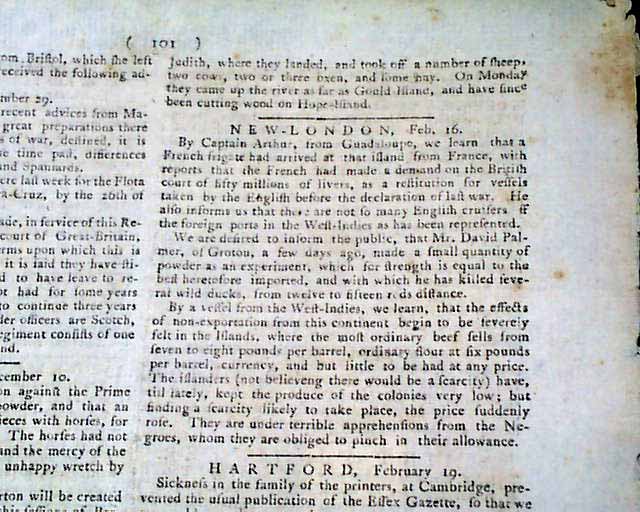 ( 101 )
om Bristol, which she left
eceived the following ad-
mber 29.
recent advices from Ma-
great preparations there
s of war, destined, it is
e time past, differences
and Spaniards.
ere last week for the Flota
a-Cruz, by the 26th of
ade, in service of this Re-
court of Great-Britain,
erms upon which this is
it is said they have sti-
d to have leave to re-
ot had for some years
to continue three years
der officers are Scotch,
egiment consists of one
nd.
cember 10.
on against the Prime
powder, and that an
ieces with horses, for
The horses had not
and the mercy of the
unhappy wretch by
rton will be created
Judith, where they landed, and took off a number of sheep,
two cows, two or three oxen, and some hay. On Monday
they came up the river as far as Gould Island, and have since
been cutting wood on Hope-Island.
NEW-LONDON, Feb. 16.
By Captain Arthur, from Guadaloupe, we learn that a
French frigate had arrived at that island from France, with
reports that the French had made a demand on the British
court of fifty millions of livers, as a restitution for vessels
taken by the English before the declaration of last war. He
also informs us that there are not so many English cruisers off
the foreign ports in the West-Indies as has been represented.
We are desired to inform the public, that Mr. David Pal-
mer, of Groton, a few days ago, made a small quantity of
powder as an experiment, which for strength is equal to the
best heretofore imported, and with which he has killed seve-
ral wild ducks, from twelve to fifteen rods distance.
By a vessel from the West-Indies, we learn, that the effects
of non-exportation from this continent begin to be severely
felt in the Islands, where the most ordinary beef sells from
seven to eight pounds per barrel, ordinary flour at six pounds
per barrel, currency, and but little to be had at any price.
The islanders (not believeng there would be a scarcity) have,
till lately, kept the produce of the colonies very low; but
finding a scarcity likely to take place, the price suddenly
rose. They are under terrible apprehensions from the Ne-
groes, whom they are obliged to pinch in their allowance.
HARTFORD, February 19.
Sickness in the family of the printers, at Cambridge, pre-
vented the usual publication of the Essex Gazette, so that we